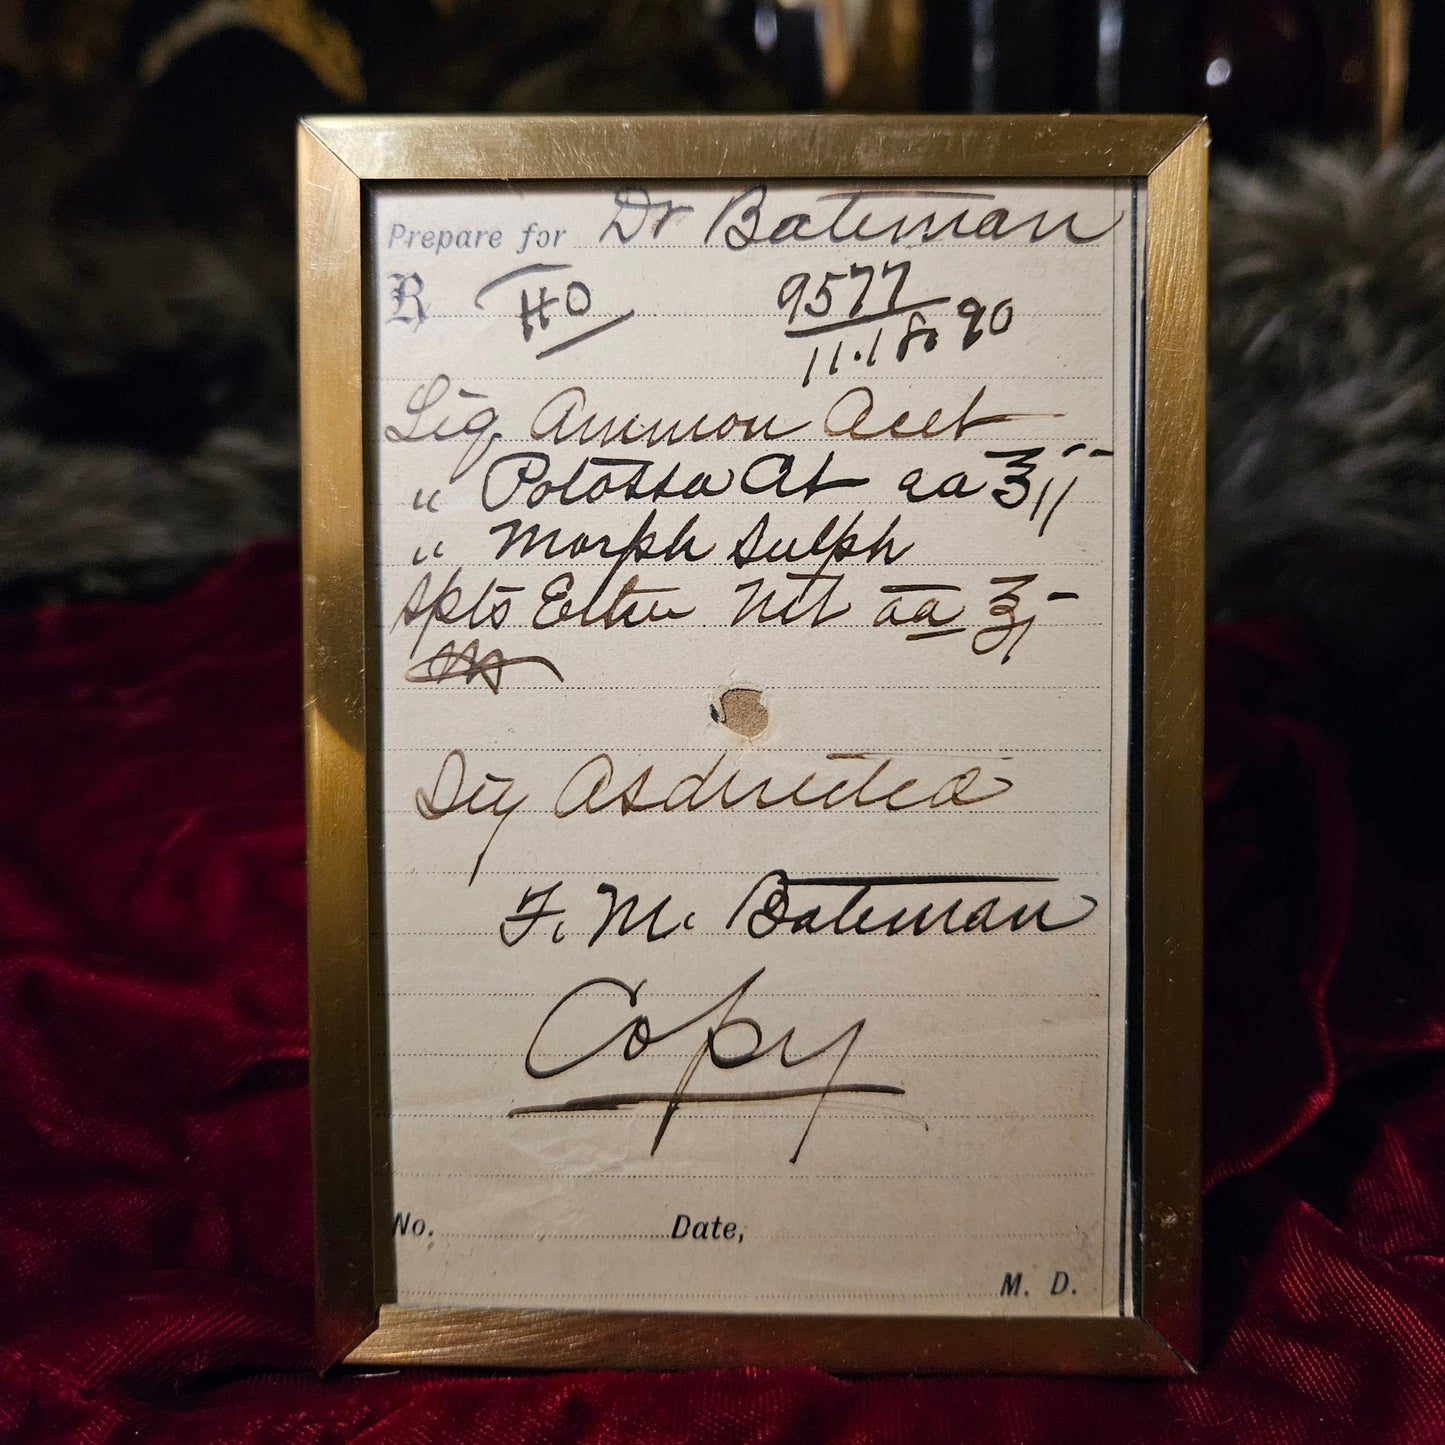 Prepare for Dr Bateman
℞ HO 9577
11.18.90
Liq Ammon Acet
" Potassa Cit aa ℥ij
" Morph Sulph
Spts Ether Nit aa ℥j
Sig As directed
F. M. Bateman
Copy
No. Date,
M. D.